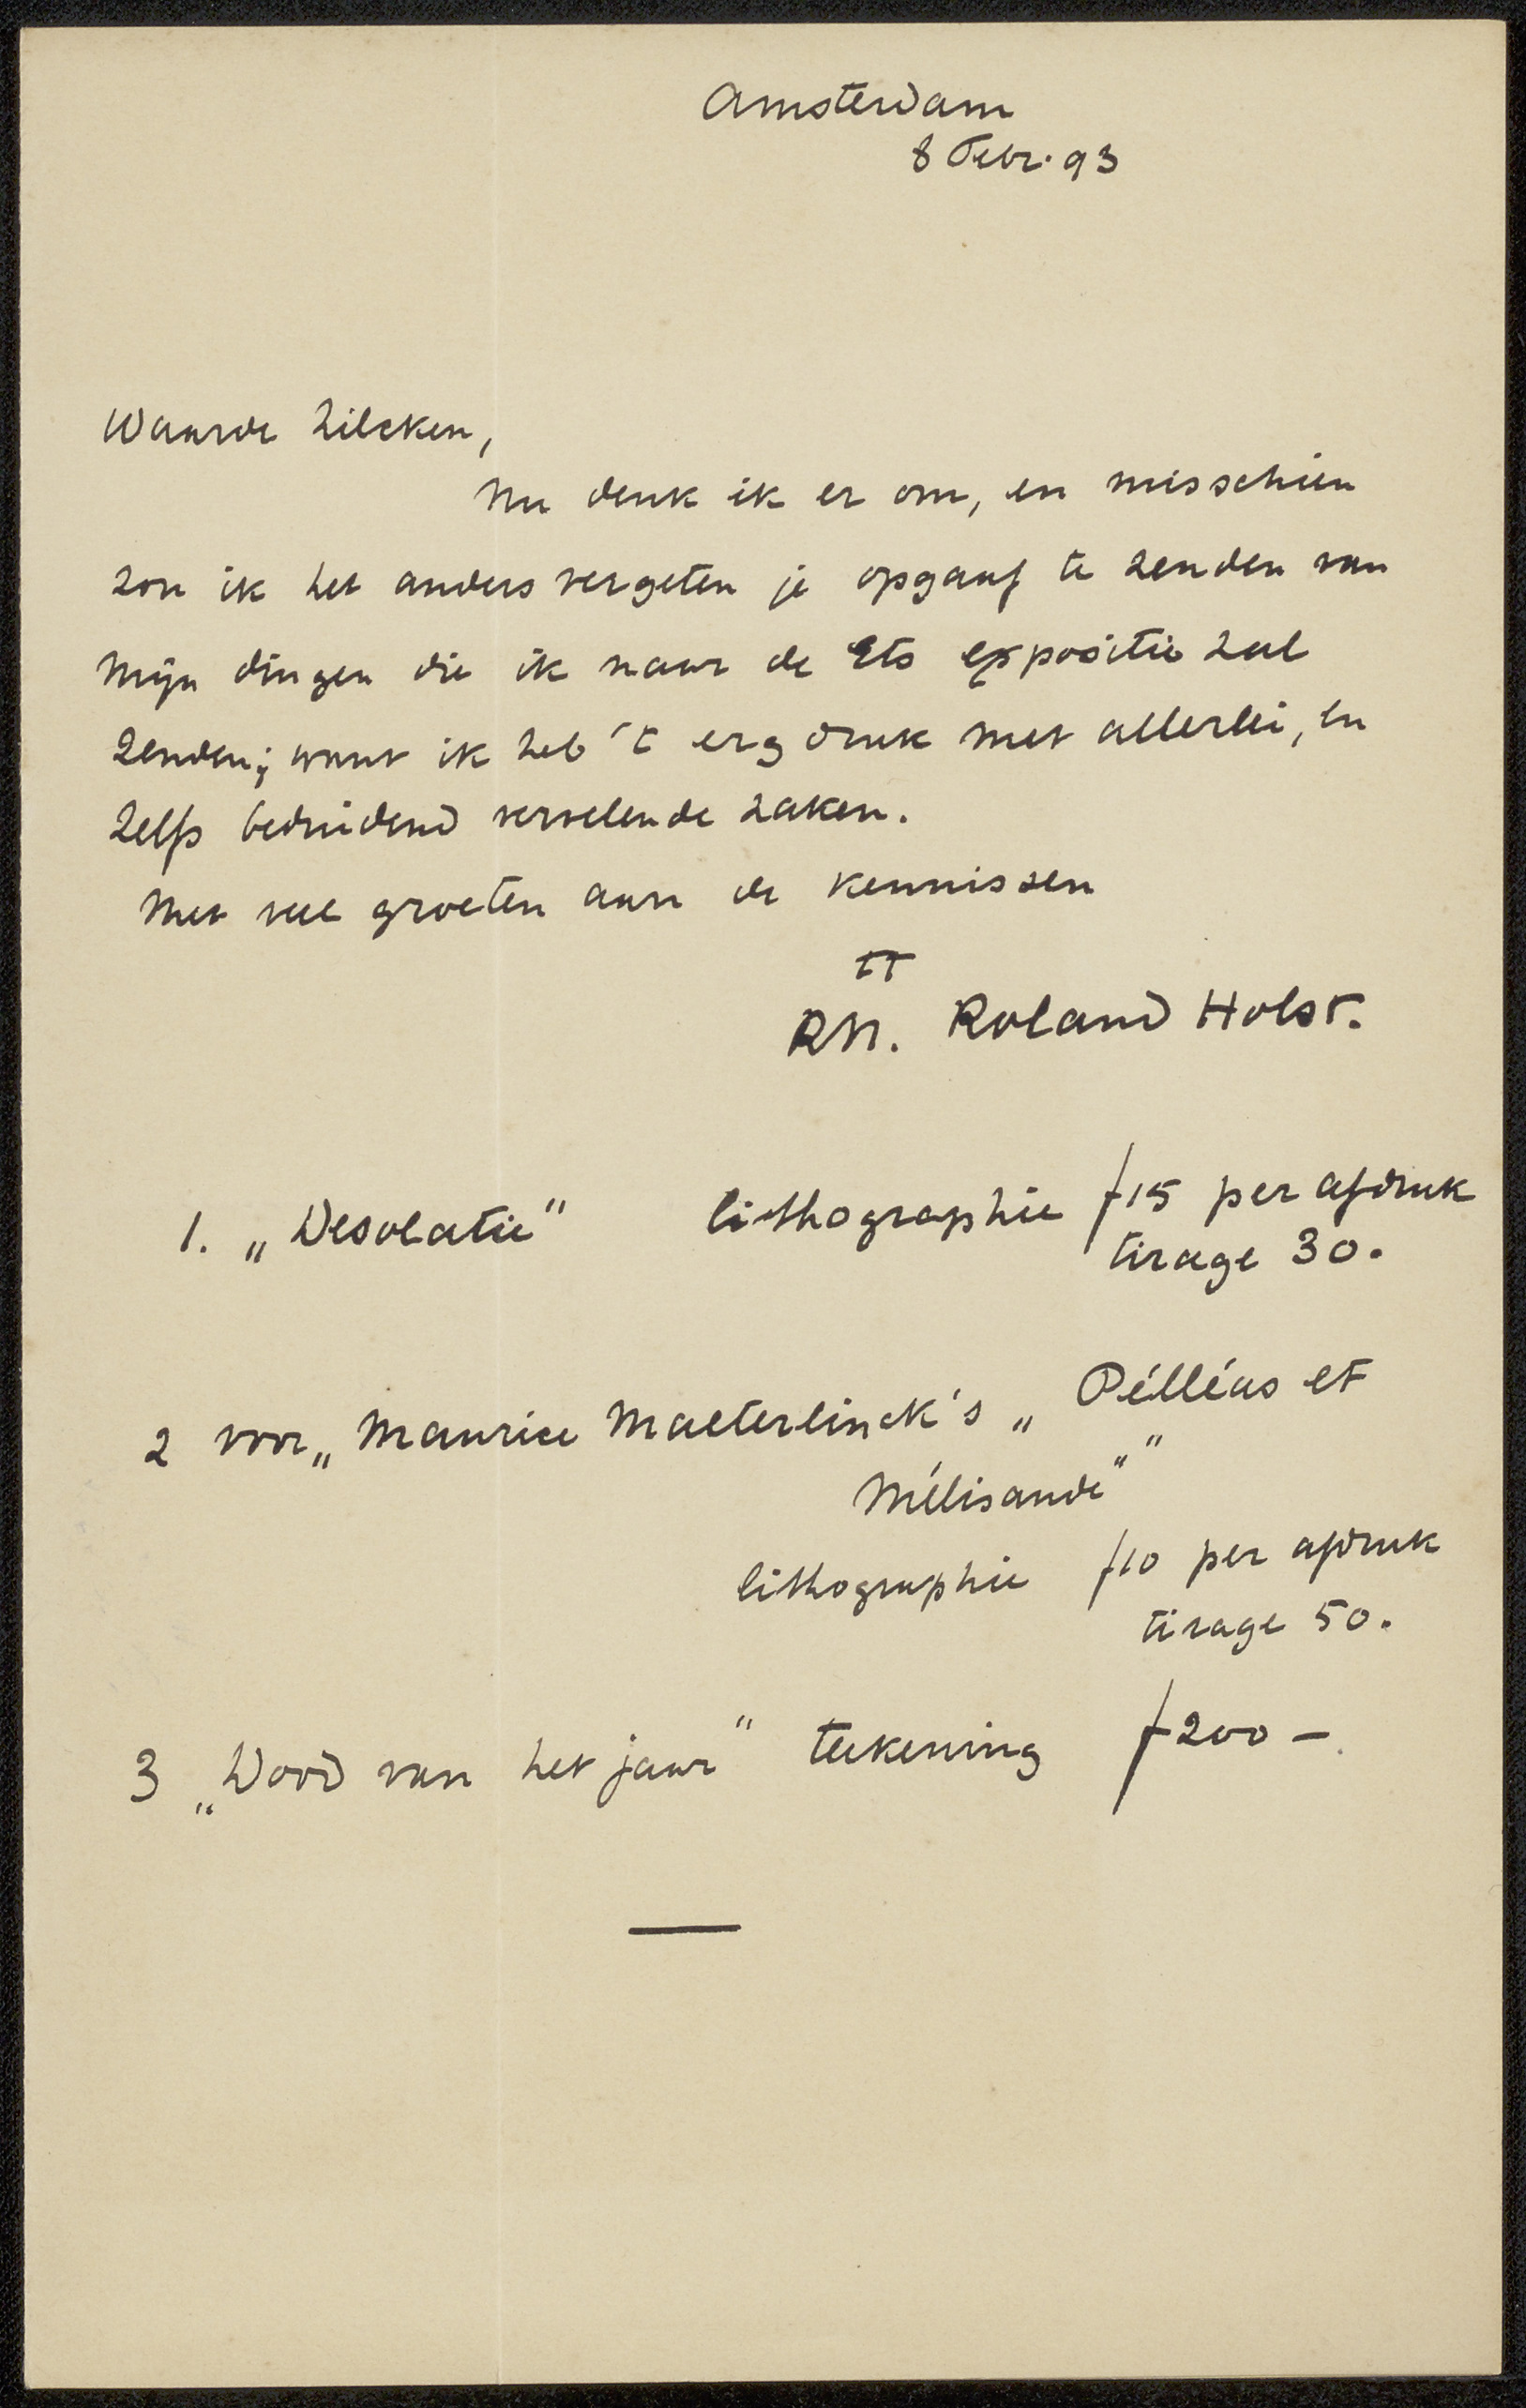 Amsterdam
8 Febr. 93
Waarde Zilcken,
Nu denk ik er om, en misschien
zou ik het anders vergeten je opgaaf te zenden van
mijn dingen die ik naar de Ets expositie zal
zenden; want ik heb 't erg druk met allerlei, en
zelfs beduidend vervelende zaken.
Met veel groeten aan de kennissen
tt
RN. Roland Holst.
1. „Desolatie" lithographie f 15 per afdruk
tirage 30.
2 voor „Maurice Maeterlinck's „Pélléas et
Mélisande" "
lithographie f 10 per afdruk
tirage 50.
3 „Dood van het jaar" teekening f 200 –